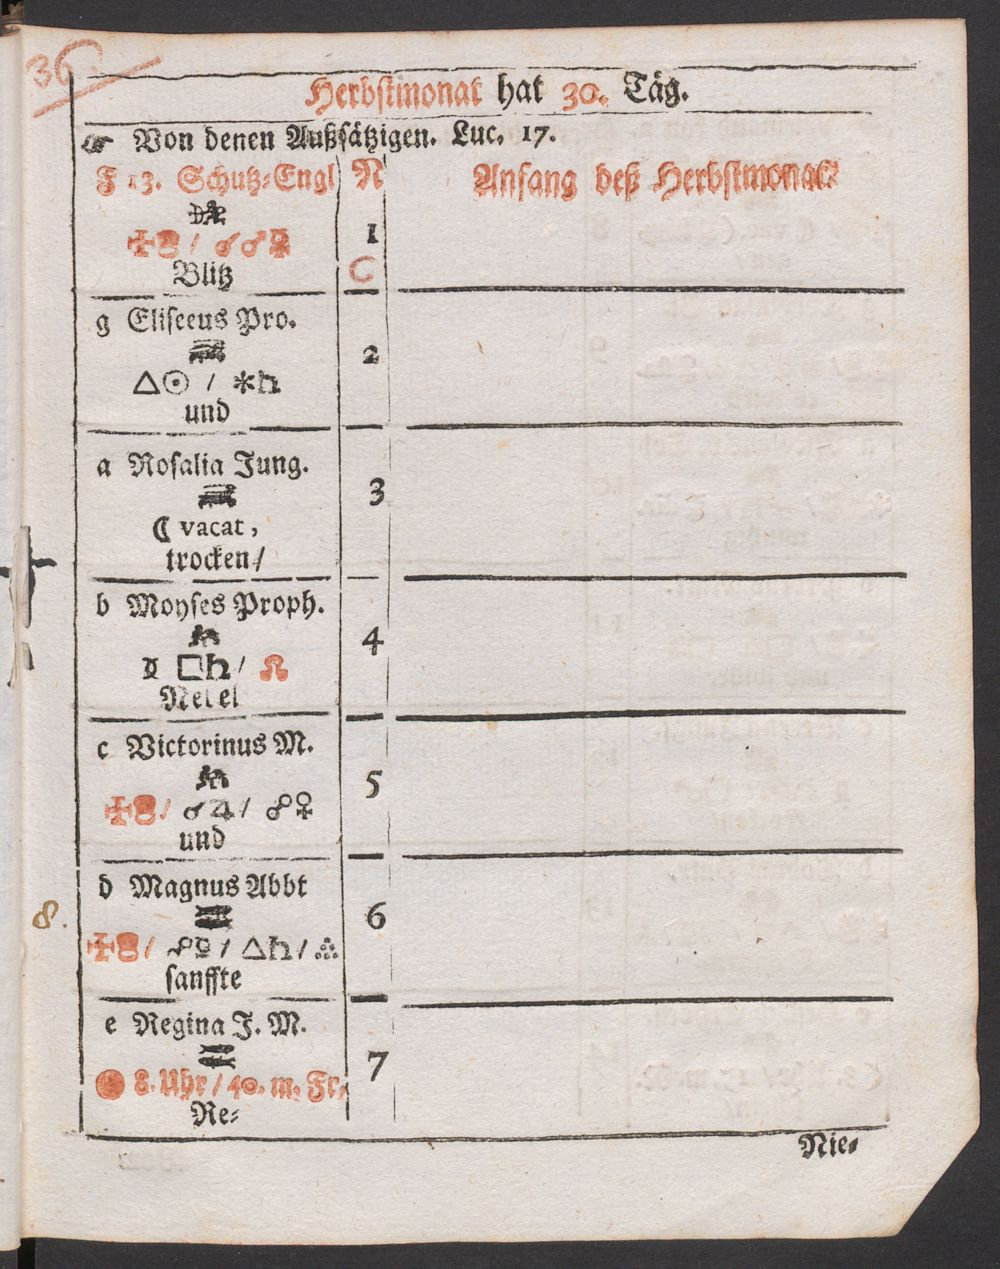 36
Herbstmonat hat 30. Täg.
☞ Von denen Außsätzigen. Luc. 17.
F 13. Schutz-Engl N Anfang deß Herbstmonat
♐
/ ☌♂☿ 1
Blitz C
g Eliseeus Pro.
♑ 2
△☉ / ✱♄
und
a Rosalia Jung.
♑ 3
☾ vacat,
trocken/
b Moyses Proph.
♒ 4
☿ □♄/ ☊
Nebel
c Victorinus M.
♒ 5
/ ☌♃/ ☍♀
und
d Magnus Abbt
♓ 6
8.
/ ☍☿ / △♄/
sanffte
e Regina J. M.
♓ 7
8. Uhr / 40. m. Fr.
Re-
Nie-